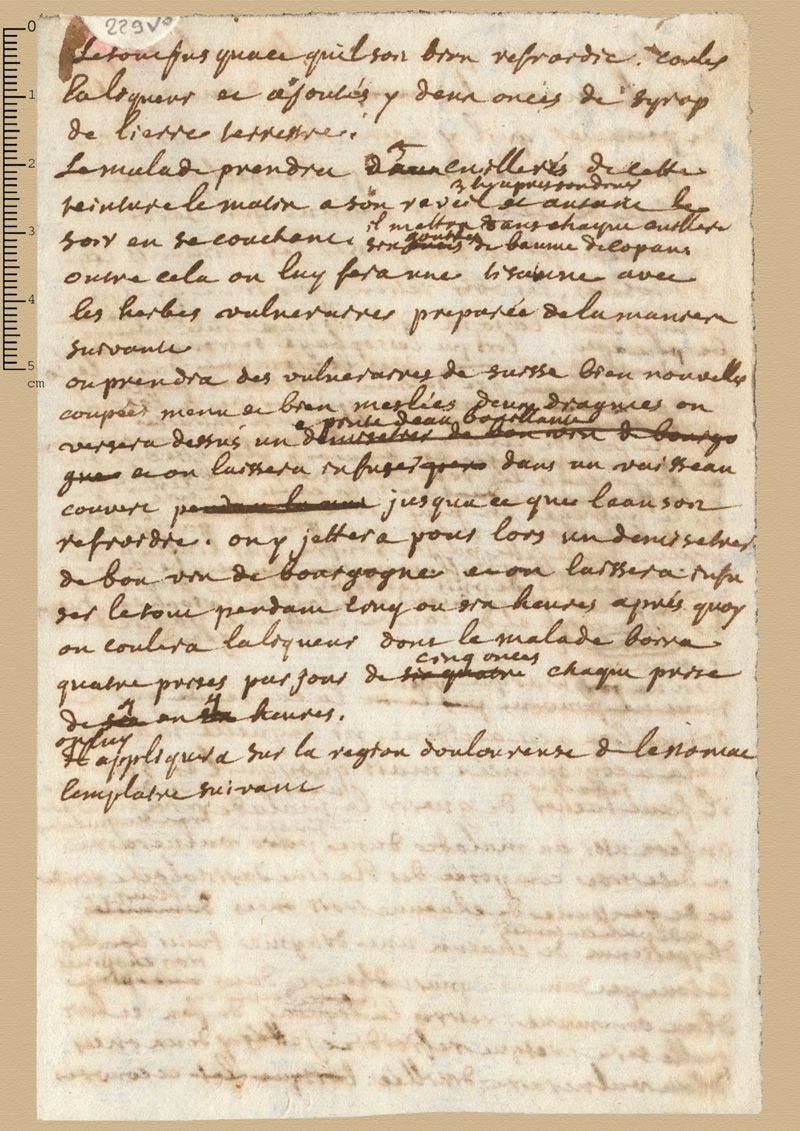 229 v°
le tout jusqua ce quil soit bien refroidie. coulés
la liqueur et ajoutés y deux onces de syrop
de lierre terrestre.
Le malade prendra cuillerés de cette
teinture le matin a son reveil et autant le
3 heures apres son diner
soir en se couchant. il mettra dans chaque cuilleré
six gouttes de baume de copaue
outre cela on luy fera une tisanne avec
les herbes vulneraires preparée de la maniere
suivante
on prendra des vulneraires de suisse bien nouvelles
coupées menu et bien meslées deux dragmes on
e pinte deau bouillante
versera dessus un demisetier de bon vin de bourgo
gne et on laissera infuser dans un vaisseau
couvert pendant la nuit jusqua ce que leau soit
refroidie. on y jettera pour lors un demisetier
de bon vin de bourgogne et on laissera infu
ser le tout pendant cinq ou six heures aprés quoy
on coulera la liqueur dont le malade boira
cinq onces
quatre prises par jour de six quatre chaque prise
de en heures.
on luy
Il appliquera sur la region douloureuse de lestomac
lemplatre suivant